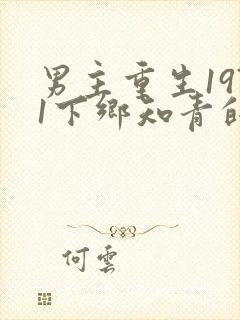 男主重生197
1下鄉知青的
何雲